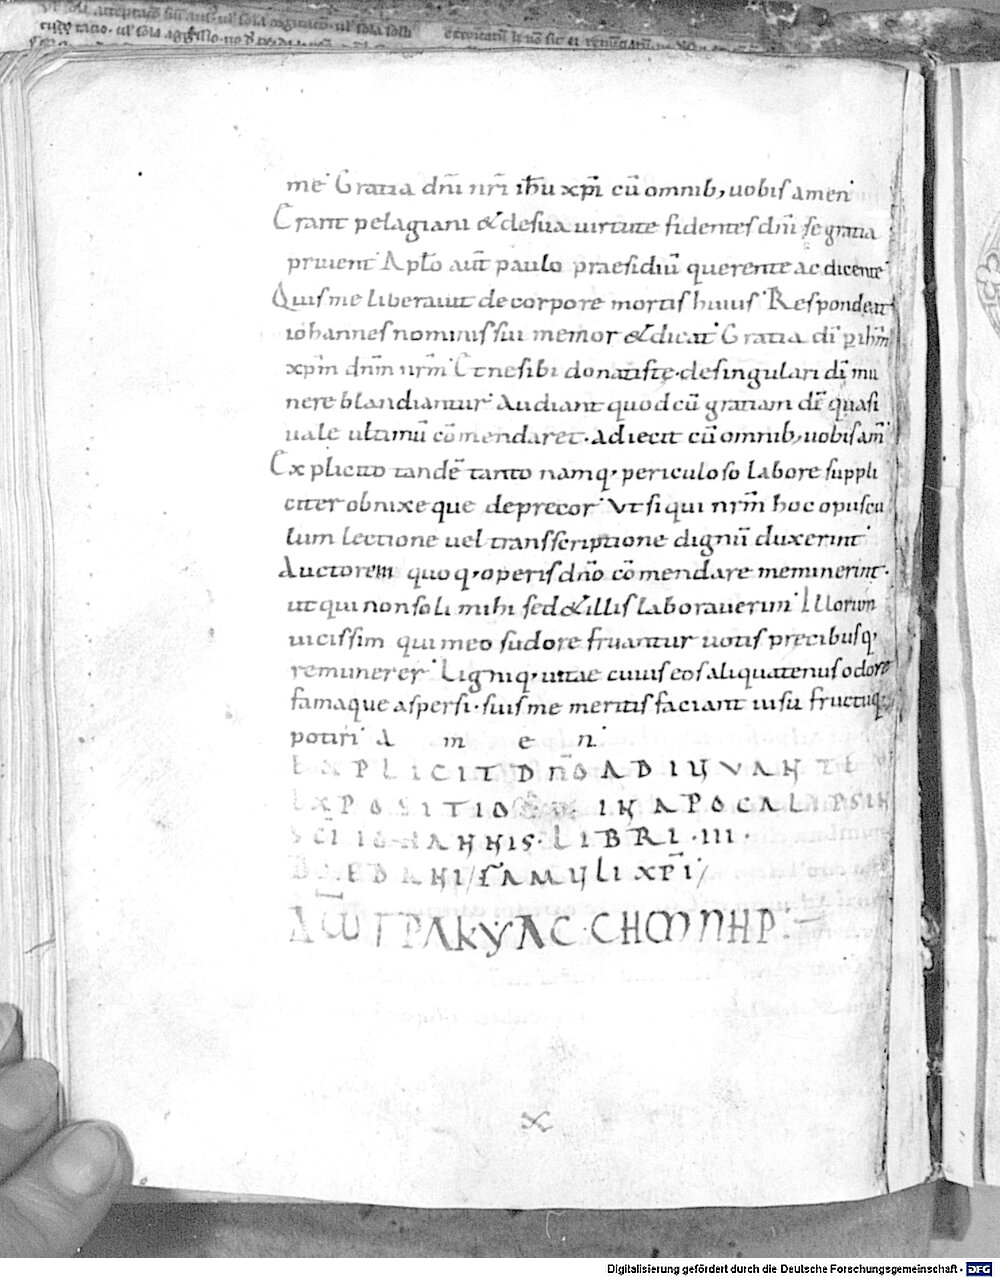 me. Gratia dñi nr̄i ih̄u xp̄i cū omnib; uobis amen.
Erant pelagiani & de sua uirtute fidentes dn̄i se gratia
priuent. Apl̄o aūt paulo praesidiū querente ac dicente.
Quis me liberauit de corpore mortis huius. Respondeat
iohannes nominis sui memor & dicat. Gratia dī p ih̄m
xp̄m dn̄m nr̄m. Et ne sibi donatiste de singulari dī mu
nere blandiantur. Audiant quod cū gratiam dī quasi
uale ultimū cōmendaret. adiecit cū omnib; uobis am̄.
Explicito tandē tanto namq; periculoso labore suppli
citer obnixe que deprecor. Vt si qui nr̄m hoc opuscu
lum lectione uel transscriptione dignū duxerint.
Auctorem quoq; operis dn̄o cōmendare meminerint.
ut qui non soli mihi sed & illis laborauerim. Illorum
uicissim qui meo sudore fruantur uotis precibusq;
remunerer. Ligniq; uitae cuius eos aliquatenus odore
famaque aspersi. suis me meritis faciant uisu fructuq;
potiri. a m e n.
EXPLICIT Dn̄O ADIUVANTE
EXPOSITIO IN APOCALIPSIN
SCI IOHANNIS. LIBRI .III.
BAEDANI FAMULI XP̄I